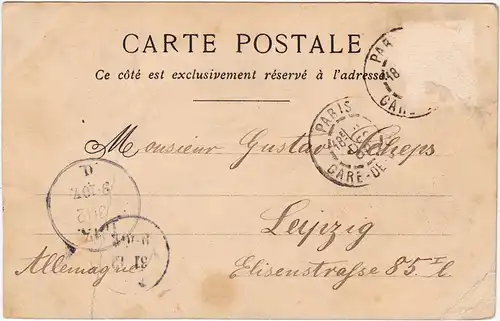 CARTE POSTALE
Ce côté est exclusivement réservé à l'adresse.
PARIS
GARE-DE
Monsieur Gustav Scheps
Leipzig
Allemagne
Elisenstraße 85 I l.